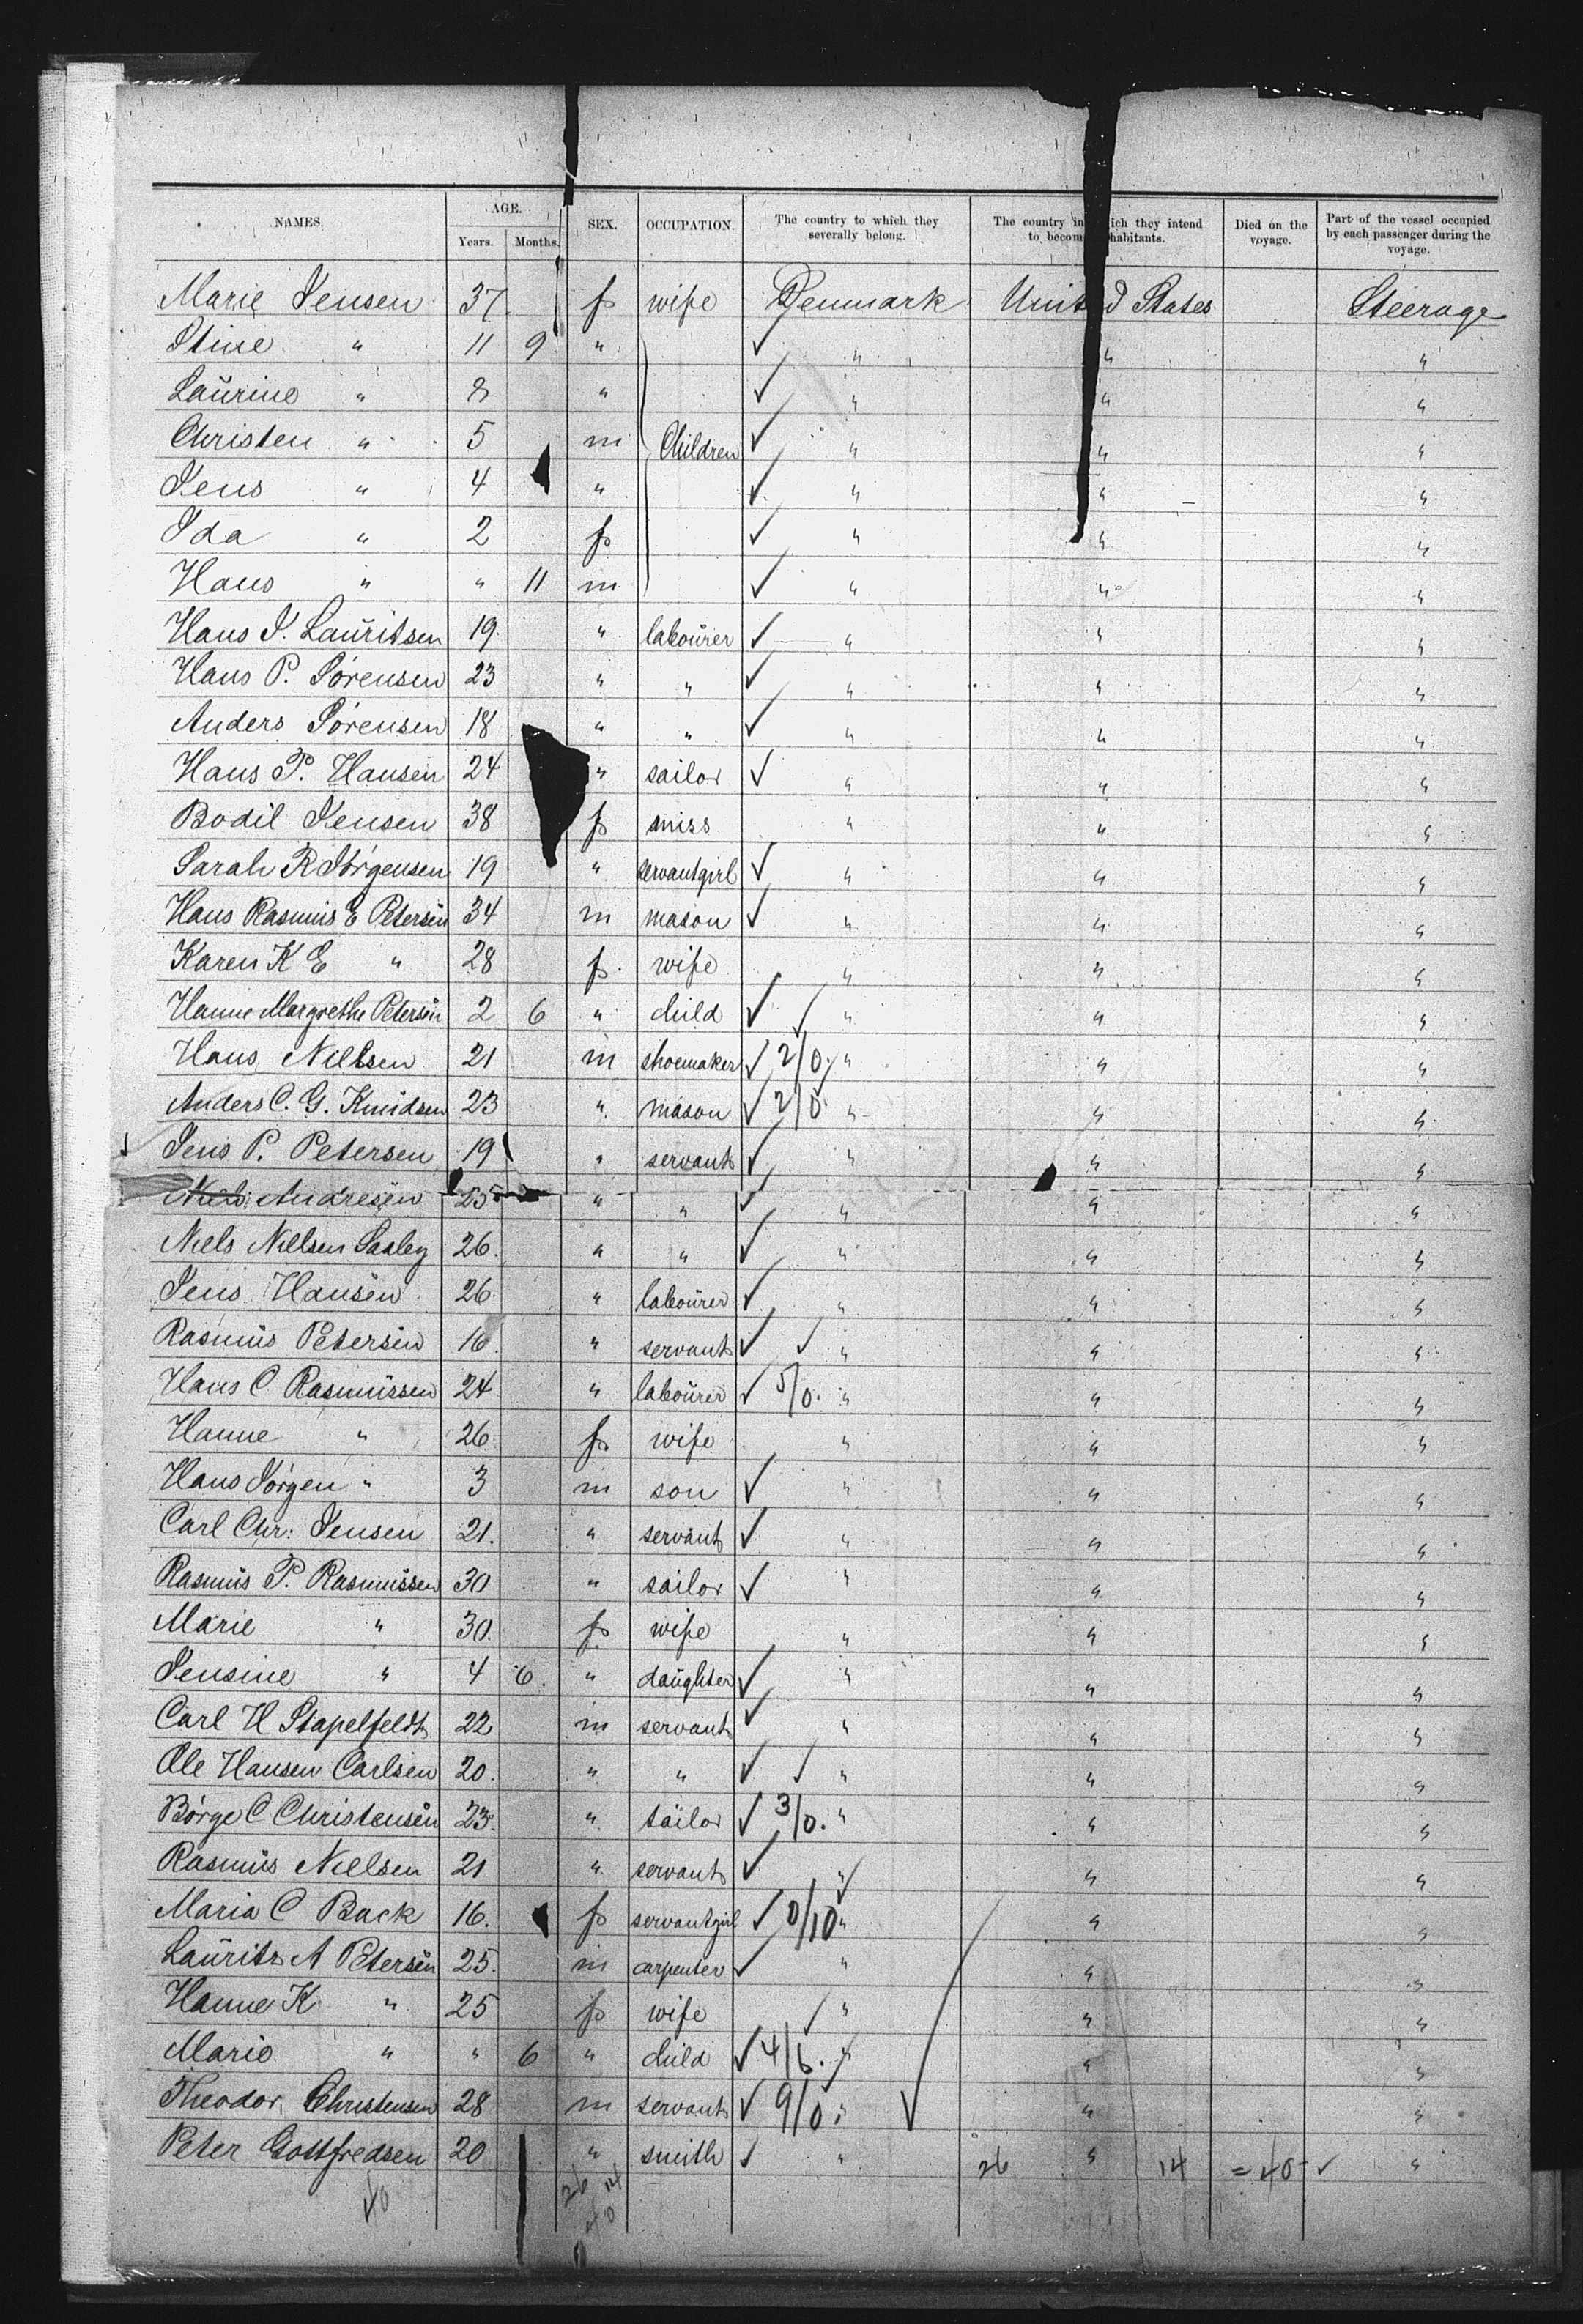 NAMES. AGE. SEX. OCCUPATION. The country to which they severally belong. The country in which they intend to become inhabitants. Died on the voyage. Part of the vessel occupied by each passenger during the voyage.
Years. Months.
Marie Jensen 37 f wife Denmark United States Steerage
Stine " 11 9 " " " "
Laurine " 8 " " " "
Christen " 5 m Children " " "
Jens " 4 " " " "
Ida " 2 f " " "
Hans " " 11 m " " "
Hans J. Lauritsen 19 " labourer " " "
Hans P. Sörensen 23 " " " " "
Anders Sörensen 18 " " " " "
Hans P. Hansen 24 " sailor " " "
Bodil Jensen 38 f miss " " "
Sarah R Jörgensen 19 " servantgirl " " "
Hans Rasmus E Petersen 34 m mason " " "
Karen K E " 28 f wife " " "
Hanne Margrethe Petersen 2 6 " child " " "
Hans Nielsen 21 m shoemaker 2/0 " " "
Anders C. G. Knudsen 23 " mason 2/0 " " "
Jens P. Petersen 19 " servant " " "
Niels Andresen 25 " " " " "
Niels Nielsen Saaley 26 " " " " "
Jens Hansen 26 " labourer " " "
Rasmus Petersen 16 " servant " " "
Hans C Rasmussen 24 " labourer 5/0 " " "
Hanne " 26 f wife " " "
Hans Jörgen " 3 m son " " "
Carl Chr: Jensen 21 " servant " " "
Rasmus P. Rasmussen 30 " sailor " " "
Marie " 30 f wife " " "
Jensine " 4 6 " daughter " " "
Carl H Stapelfeldt 22 m servant " " "
Ole Hansen Carlsen 20 " " " " "
Börge C Christensen 23 " tailor 3/0 " " "
Rasmus Nielsen 21 " servant " " "
Maria C Back 16 f servantgirl 0/10 " " "
Lauritz A Petersen 25 m carpenter " " "
Hanne K " 25 f wife " " "
Marie " " 6 " child 4/6 " " "
Theodor Christensen 28 m servant 9/0 " " "
Peter Gottfredsen 20 " smith " 26 " 14 = 40 "
40 26 14
40